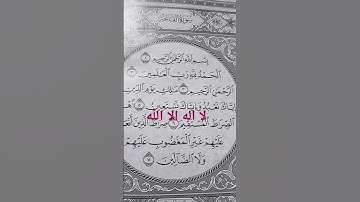 سورة الفاتحة
بسم الله الرحمن الرحيم ١
الحمد لله رب العلمين ٢
الرحمن الرحيم ٣ ملك يوم الدين
إياك نعبد وإياك نستعين ٥ اهد
لا اله الا الله
الصرط المستقيم ٦ صرط الذين أنعم
عليهم غير المغضوب عليهم
ولا الضالين ٧